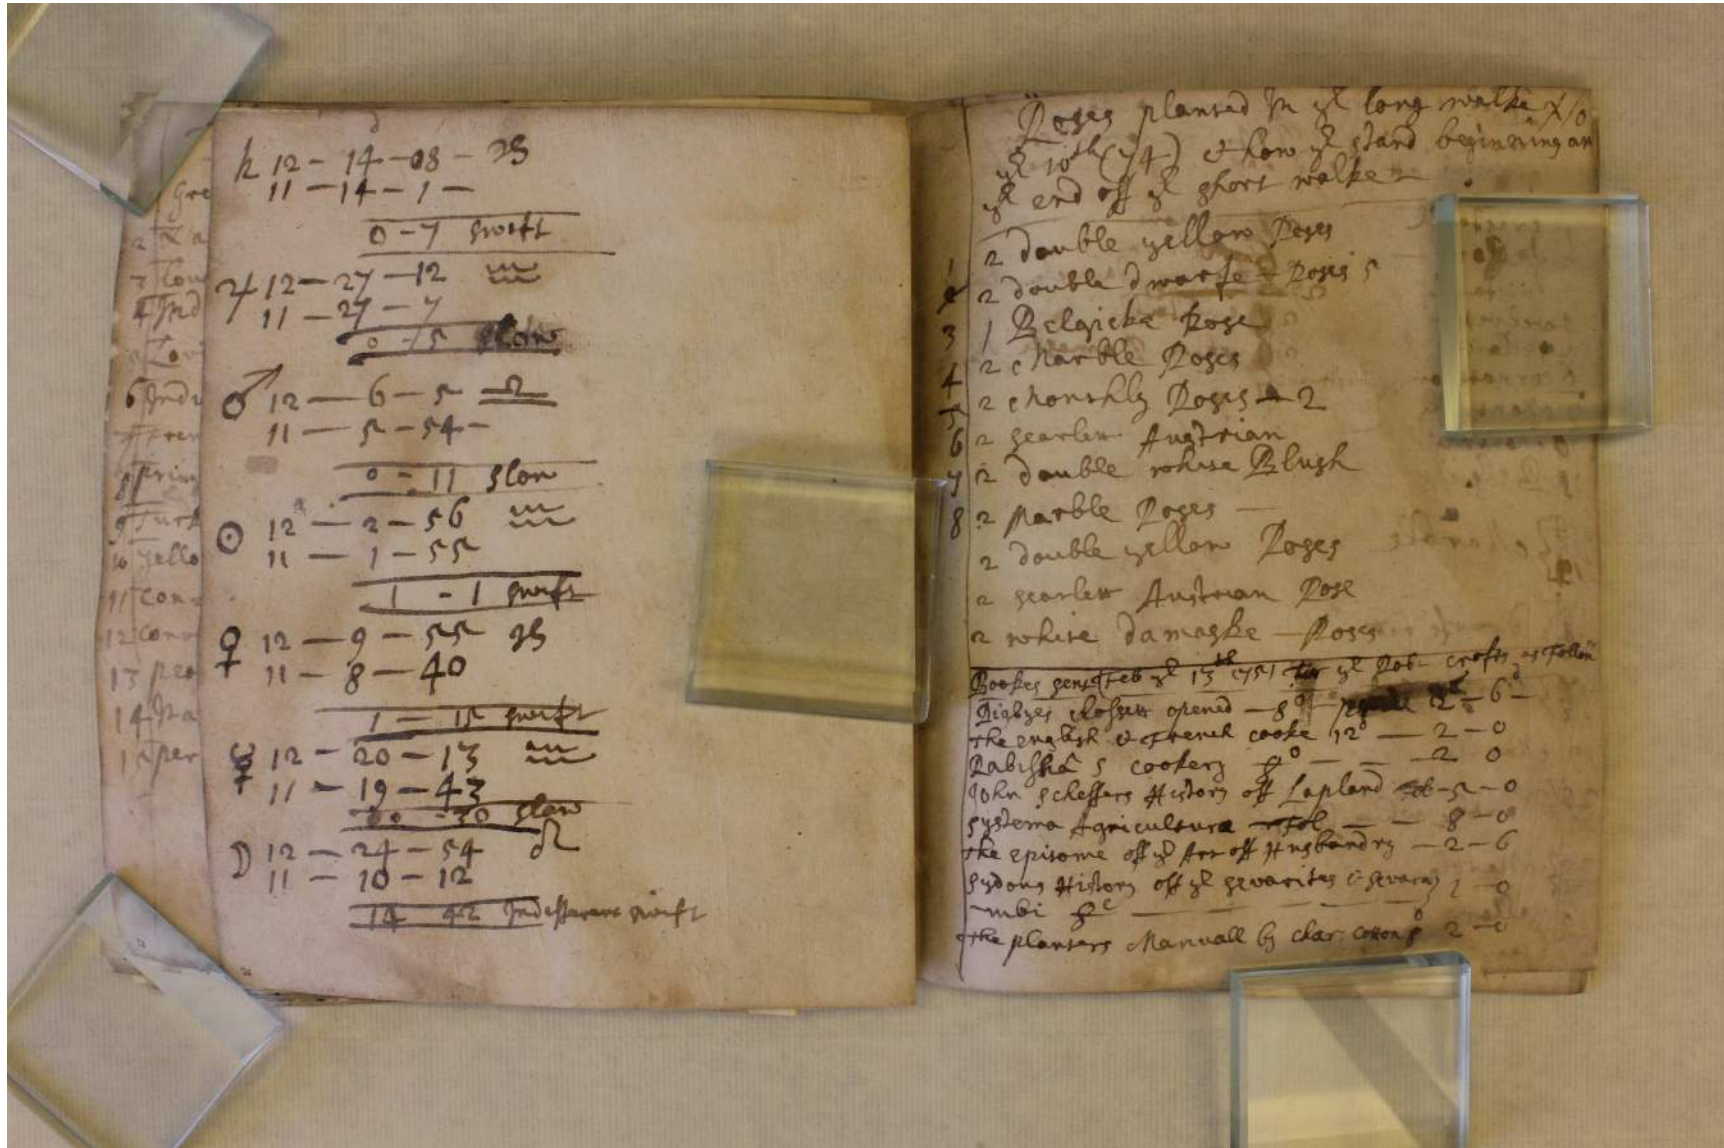 Gre
2
3 Cow
4 Ind
6 Indi
8 prim
9 Turk
10 yello
11 Conv
12 Conv
13 peo
14
15 per
♄ 12 - 14 - 08 -
11 - 14 - 1 -
0 - 7 swift
♃ 12 - 27 - 12 ♒
11 - 27 - 7
0 - 5 slow
♂ 12 - 6 - 5 ♎
11 - 5 - 54 -
0 - 11 slow
☉ 12 - 2 - 56 ♒
11 - 1 - 55
1 - 1 swift
♀ 12 - 9 - 55
11 - 8 - 40
1 - 15 swift
☿ 12 - 20 - 13 ♒
11 - 19 - 43
00 - 30 slow
☽ 12 - 24 - 54 ♌
11 - 10 - 12
14 42 Indifferent swift
Roses planted In ye long walke
ye 10th (74) & how ye stand beginering att
ye end off ye short walke
1 2 double yellow Roses
2 2 double dwarfe - Roses 5
3 1 Belgicke Rose
4 2 Marble Roses
5 2 Monthly Roses - 2
6 2 scarlett Austrian
7 2 double white Blush
8 2 Marble Roses -
2 double yellow Roses
2 scarlett Austrian Rose
2 white damaske - Roses
Bookes sent Feb ye 13th ye Rob: Crofts as Follow
Digbyes Clossett opened - 8o 2 - 6
the english & French cooke 12o - 2 - 0
Rabisha s cookery 8o - - 2 0
John Scheffers History off Lapland fol - 5 - 0
systema Agriculturæ - fol - - 8 - 0
the epitome off ye Art off Husbandry - 2 - 6
History off ye sevarites & Sevaram 1 - 0
-mbi 8o - - -
the planters Manuall by Char: Cotton 8o 2 - 0